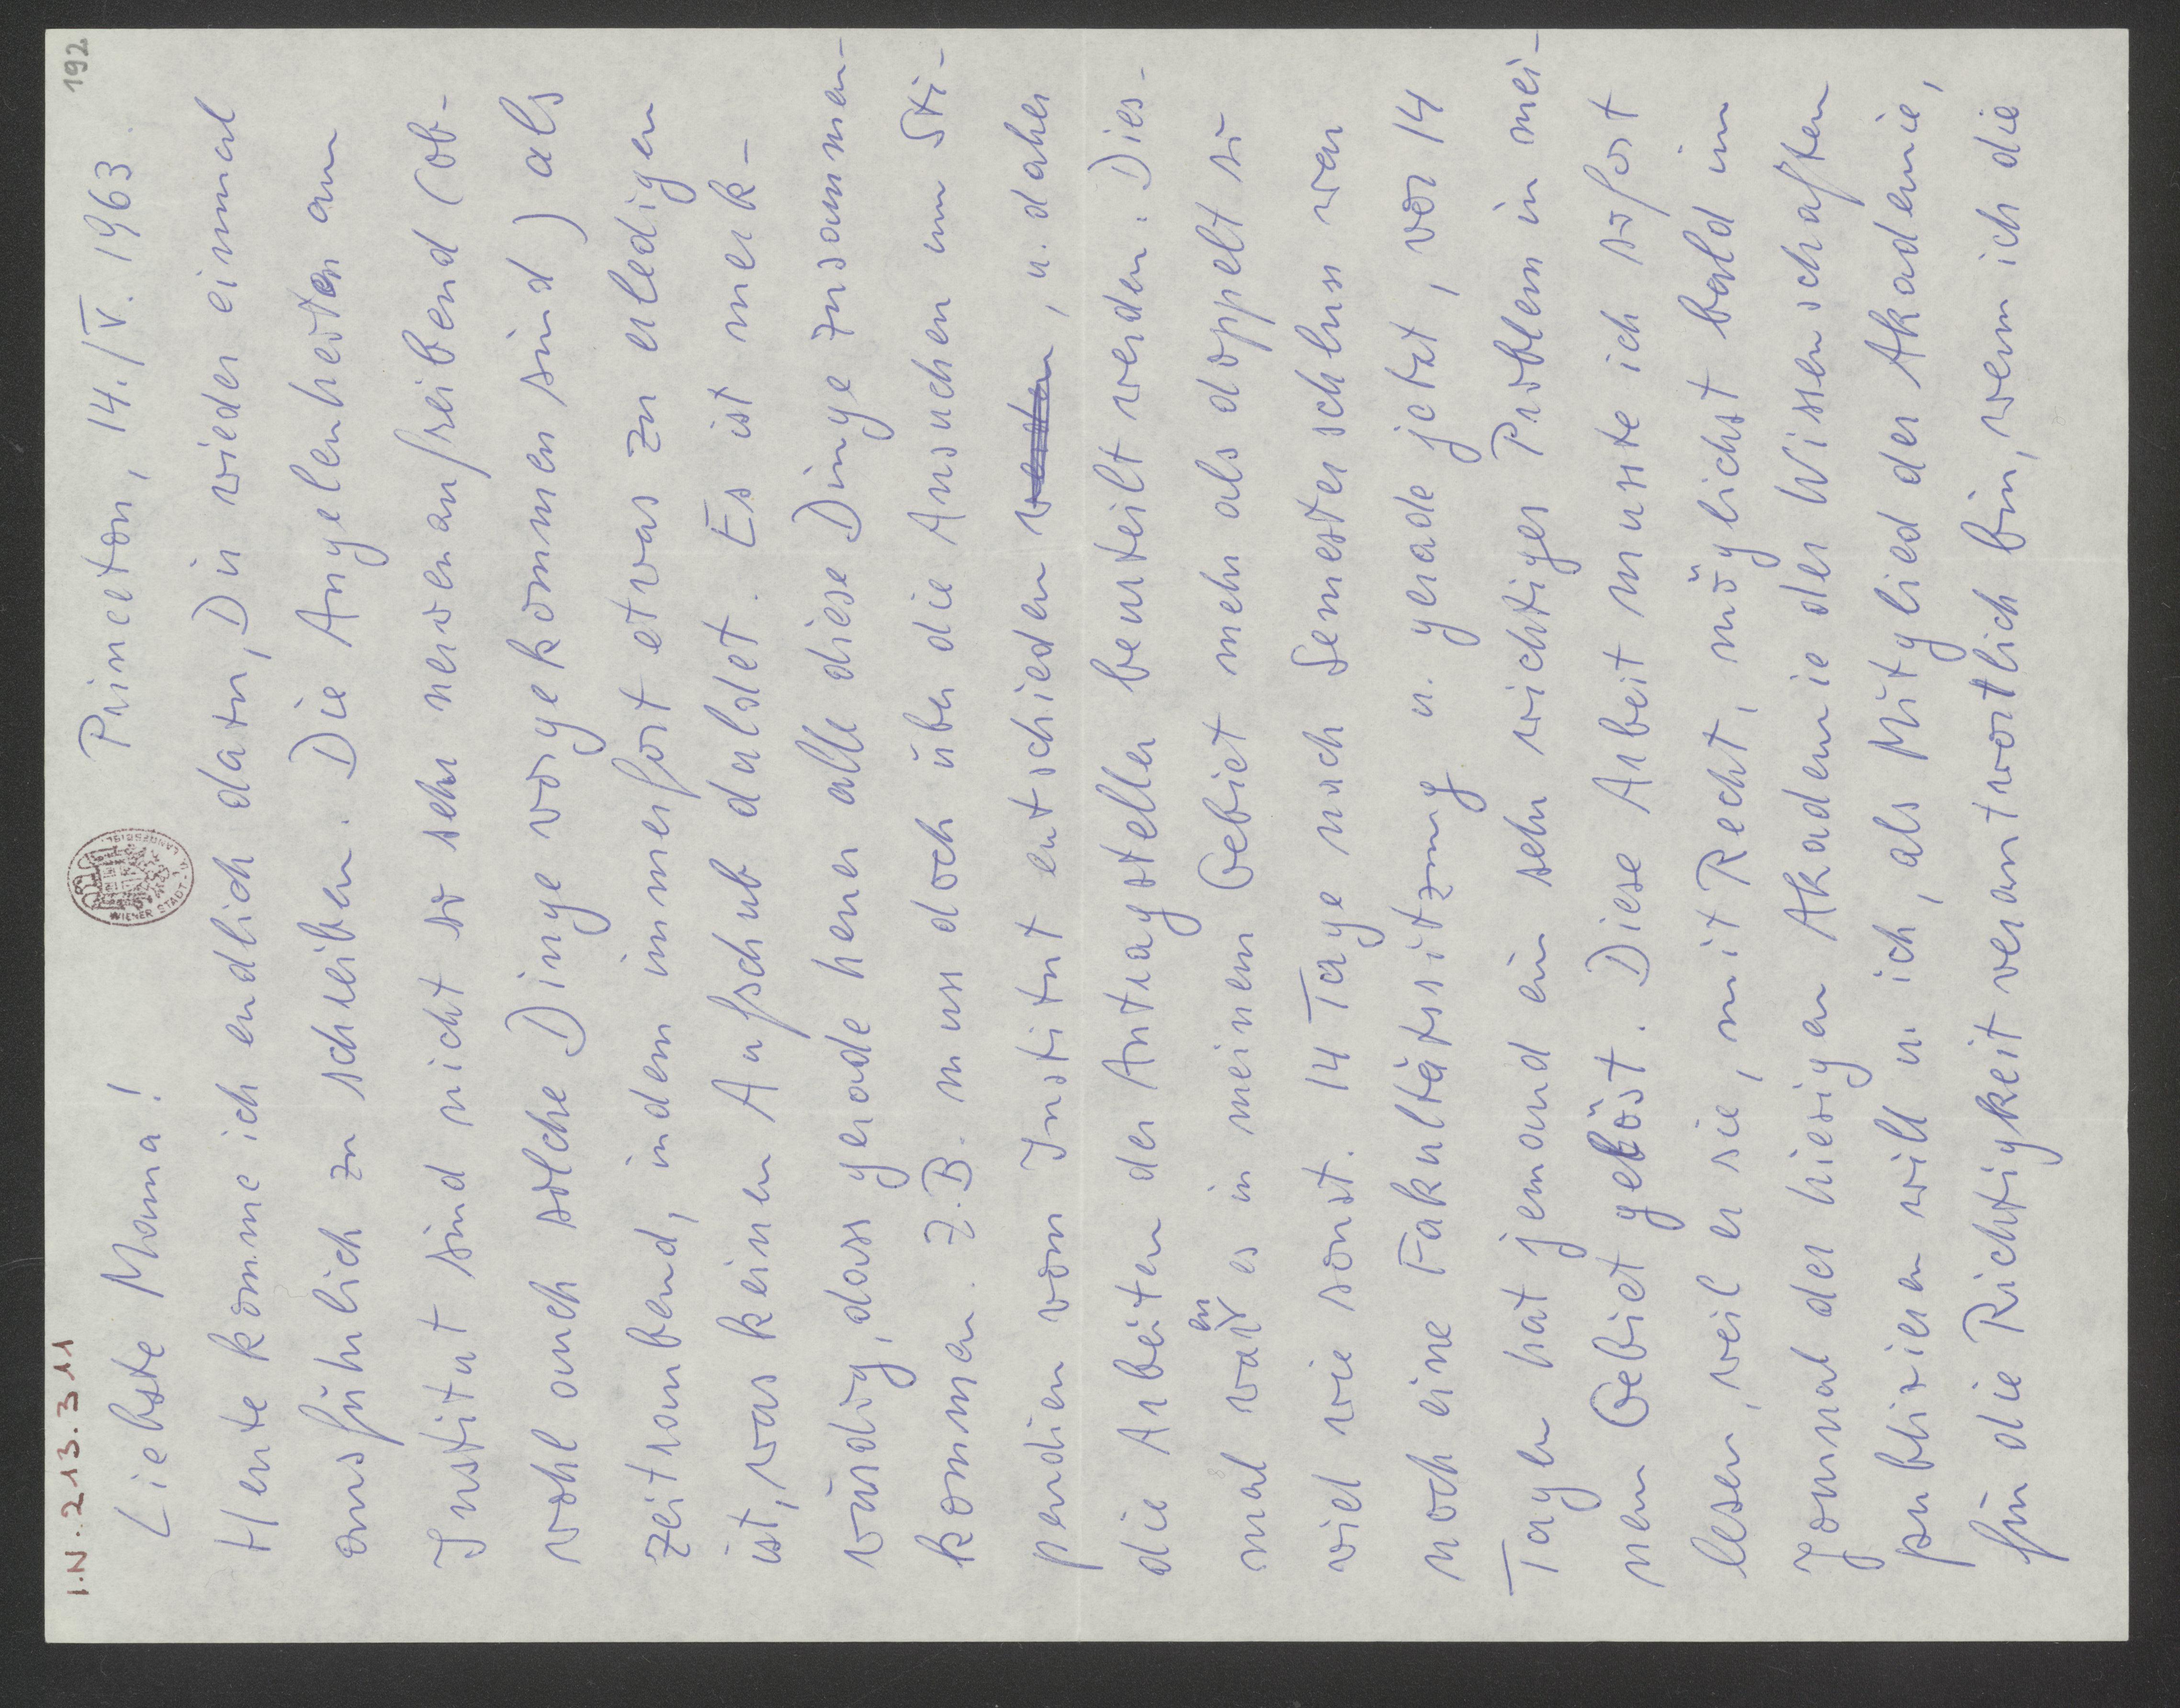 I.N. 213.311
192
WIENER STADT- U. LANDESBIBL.
Princeton, 14./V. 1963.
Liebste Mama!
Heute komme ich endlich dazu, Dir wieder einmal
ausführlich zu schreiben. Die Angelenheiten am
Institut sind nicht so sehr nervenaufreibend (ob-
wohl auch solche Dinge vorgekommen sind) als
zeitraubend, indem immerfort etwas zu erledigen
ist, was keinen Aufschub duldet. Es ist merk-
würdig, dass gerade heuer alle diese Dinge zusammen-
kommen. Z.B. muss doch über die Ansuchen um Sti-
pendien vom Institut entschieden werden, u. daher
die Arbeiten der Antragsteller beurteilt werden. Dies-
mal waren es in meinem Gebiet mehr als doppelt so
viel wie sonst. 14 Tage nach Semesterschluss war
noch eine Fakultätssitzung u. gerade jetzt, vor 14
Tagen hat jemand ein sehr wichtiges Problem in mei-
nem Gebiet gelöst. Diese Arbeit musste ich sofort
lesen, weil er sie, mit Recht, möglichst bald im
Journal der hiesigen Akademie der Wissenschaften
publizieren will u. ich, als Mitglied der Akademie,
für die Richtigkeit verantwortlich bin, wenn ich die